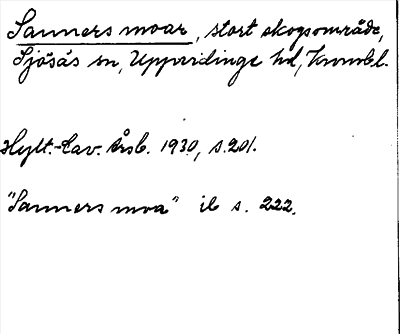 Sanners moar, stort skogsområde,
Sjösås sn, Uppvidinge hd, Kronobl.
Hylt.-Cav. Årsb. 1930, s. 201.
"Sanners moa" ib s. 222.